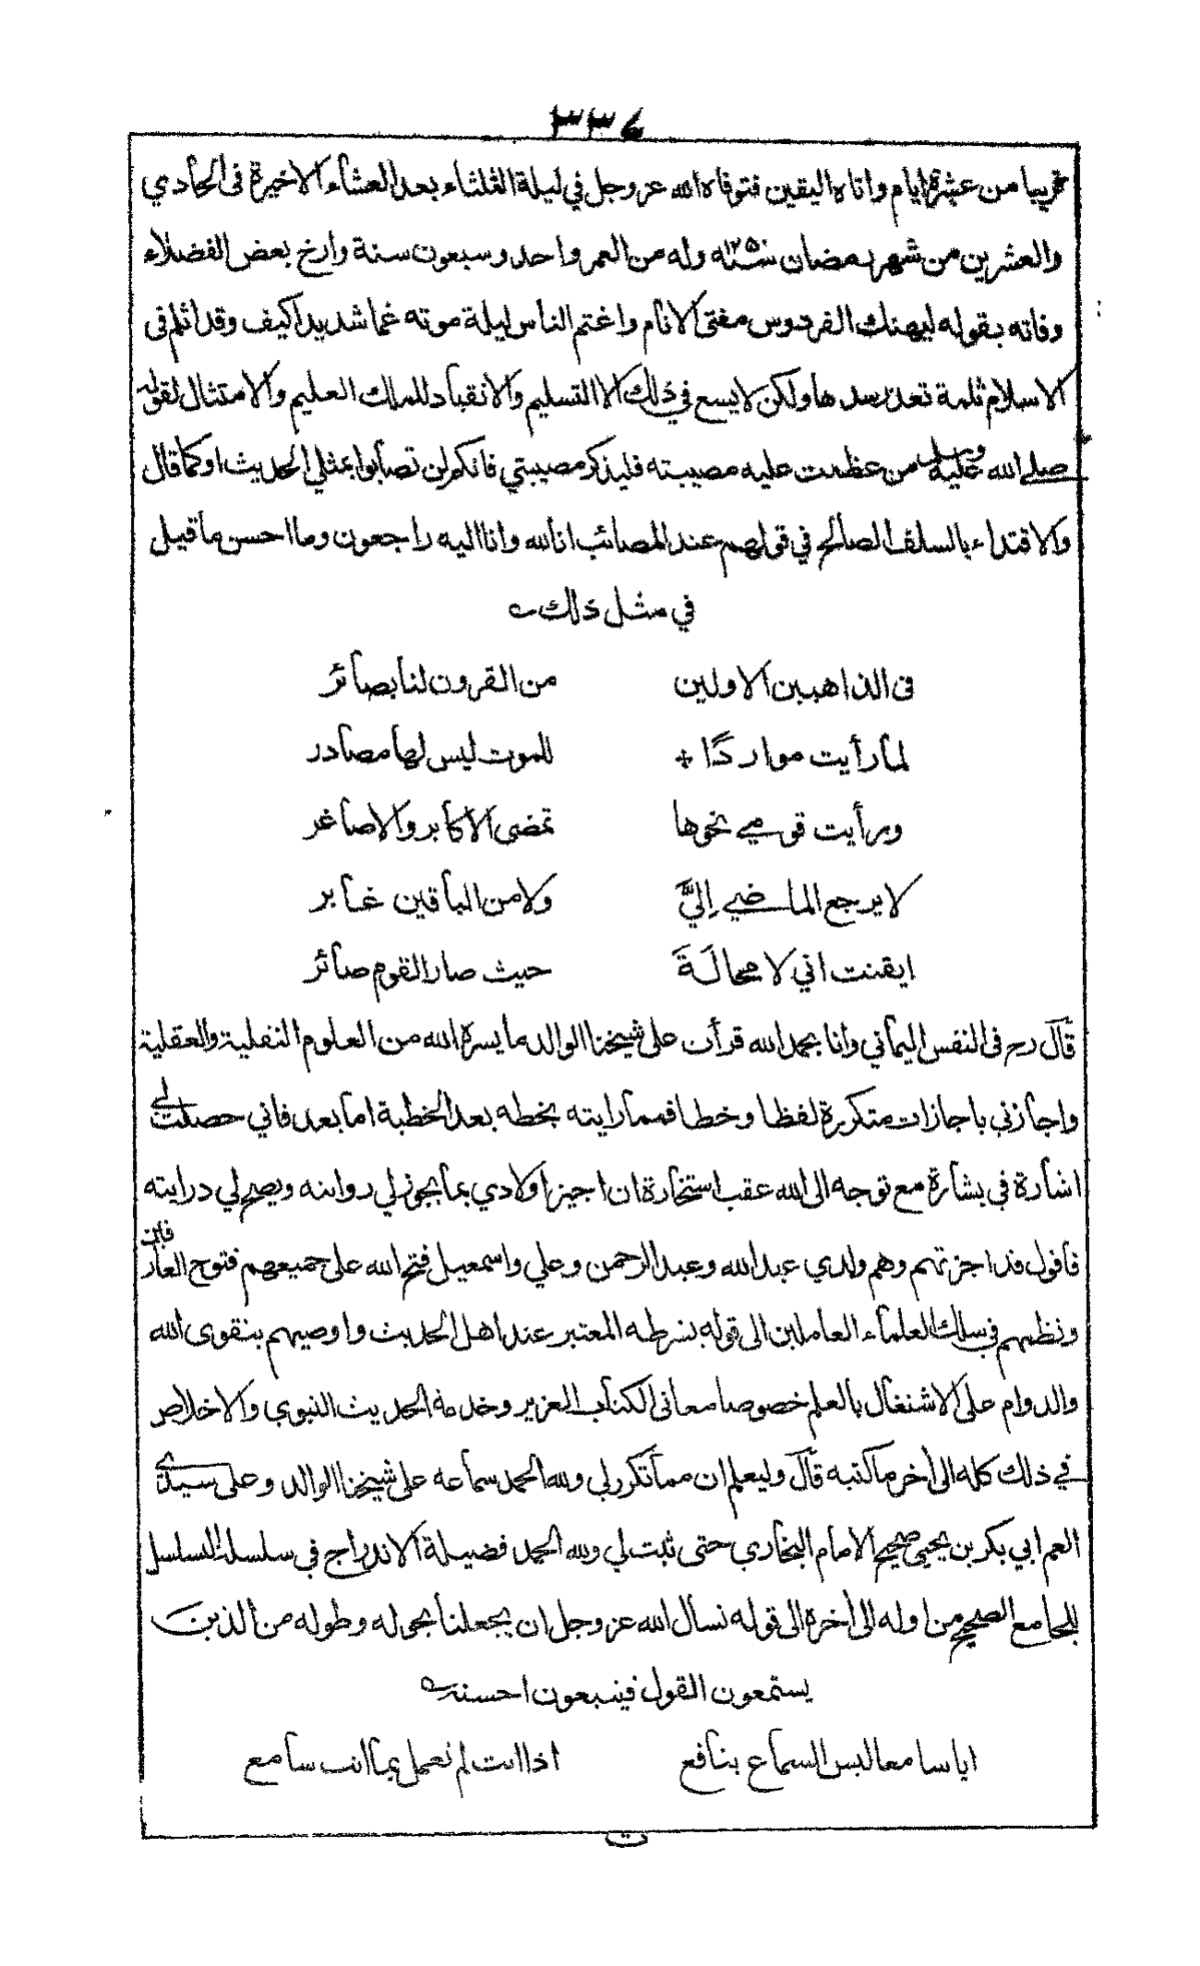 ٣٣٤
تقريبا من عشرة ايام واتاه اليقين فتوفاه الله عز وجل في ليلة الثلثاء بعد العشاء الاخيرة فى الحادي
والعشرين من شهر رمضان سنة ١٢٥٠ وله من العمر واحد وسبعون سنة وارخ بعض الفضلاء
وفاته بقوله ليهنك الفردوس مفتى الانام واغتم الناس ليلة موته غما شديدا كيف وقد انثلم فى
الاسلام ثلمة تعذر سدها ولكن لا يسع في ذلك الا التسليم والانقياد للملك العليم والامتثال لقوله
صلى الله عليه وسلم من عظمت عليه مصيبته فليذكر مصيبتي فانكم لن تصابوا بمثلي الحديث او كما قال
والاقتداء بالسلف الصالح في قولهم عند المصائب انا لله وانا اليه راجعون وما احسن ما قيل
في مثل ذلك
فى الذاهبين الاولين من القرون لنا بصائر
لما رأيت مواردًا للموت ليس لها مصادر
ورأيت قومي نحوها تمضى الاكابر والاصاغر
لا يرجع الماضي إليَّ ولا من الباقين غابر
ايقنت اني لا محالَةَ حيث صار القوم صائر
قال رح فى النفس اليماني وانا بحمد الله قرأت على شيخنا الوالد ما يسره الله من العلوم النقلية والعقلية
واجازني باجازات متكررة لفظا وخطا فمما رايته بخطه بعد الخطبة اما بعد فاني حصلت لي
اشارة في بشارة مع توجه الى الله عقب استخارة ان اجيز اولادي بما يجوز لي روايته ويصح لي درايته
فاقول قد اجزتهم وهم ولدي عبد الله وعبد الرحمن وعلي واسمعيل فتح الله على جميعهم فتوح العارفين
ونظمهم في سلك العلماء العاملين الى قوله بشرطه المعتبر عند اهل الحديث واوصيهم بتقوى الله
والدوام على الاشتغال بالعلم خصوصا معانى الكتاب العزيز وخدمة الحديث النبوي والاخلاص
في ذلك كله الى أخر ما كتبه قال وليعلم ان مما تكرر لي ولله الحمد سماعه على شيخنا الوالد وعلى سيدي
العم ابي بكر بن يحيى صحيح الامام البخاري حتى ثبت لي ولله الحمد فضيلة الاندراج في سلسلة السلسل
للجامع الصحيح من اوله الى أخره الى قوله نسأل الله عز وجل ان يجعلنا بحوله وطوله من الذين
يستمعون القول فيتبعون احسنه
ايا سامعا ليس السماع بنافع اذا انت لم تعمل بما انت سامع